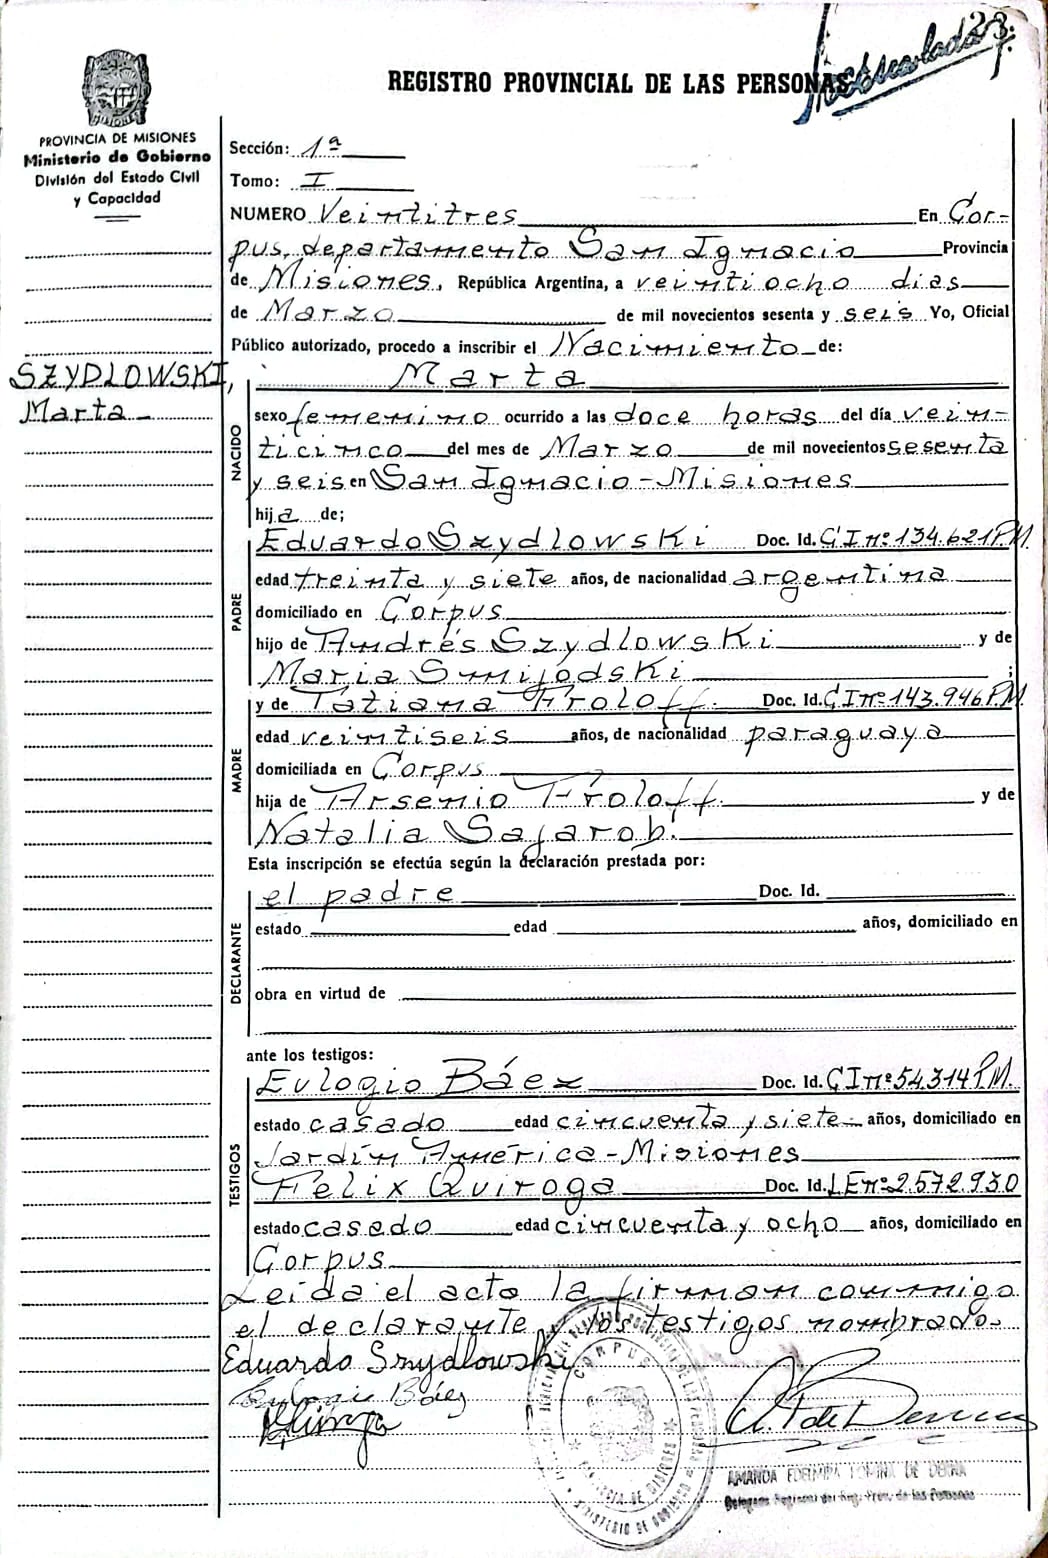 23.
REGISTRO PROVINCIAL DE LAS PERSONAS
PROVINCIA DE MISIONES
Ministerio de Gobierno
División del Estado Civil
y Capacidad
Sección: 1ª
Tomo: I
NUMERO Veintitres En Cor-
pus, departamento San Ignacio Provincia
de Misiones, República Argentina, a veintiocho dias
de Marzo de mil novecientos sesenta y seis Yo, Oficial
Público autorizado, procedo a inscribir el Nacimiento de:
SZYDLOWSKI,
Marta
Marta
NACIDO
sexo femenino ocurrido a las doce horas del día vein-
ticinco del mes de Marzo de mil novecientos sesenta
y seis en San Ignacio - Misiones
hija de;
PADRE
Eduardo Szydlowski Doc. Id. CI nº 134.621 PM.
edad treinta y siete años, de nacionalidad argentina
domiciliado en Corpus
hijo de Andrés Szydlowski y de
Maria Smijodski ;
MADRE
y de Tatiana Froloff. Doc. Id. CI nº 143.946 PM
edad veintiseis años, de nacionalidad paraguaya
domiciliada en Corpus
hija de Arsenio Froloff. y de
Natalia Sajarob.
Esta inscripción se efectúa según la declaración prestada por:
DECLARANTE
el padre Doc. Id.
estado edad años, domiciliado en
obra en virtud de
ante los testigos:
TESTIGOS
Eulogio Báez Doc. Id. CI nº 54.314 PM.
estado casado edad cincuenta y siete años, domiciliado en
Jardín América - Misiones
Felix Quiroga Doc. Id. LE nº 2.572.930
estado casado edad cincuenta y ocho años, domiciliado en
Corpus
Leida el acto la firman conmigo
el declarante y los testigos nombrado.
Eduardo Szydlowski
Eulogio Báez
CORPUS
PROVINCIA DE MISIONES
MINISTERIO DE GOBIERNO
AMANDA EDELMIRA DE
Delegada Regional del Reg. Prov. de las Personas